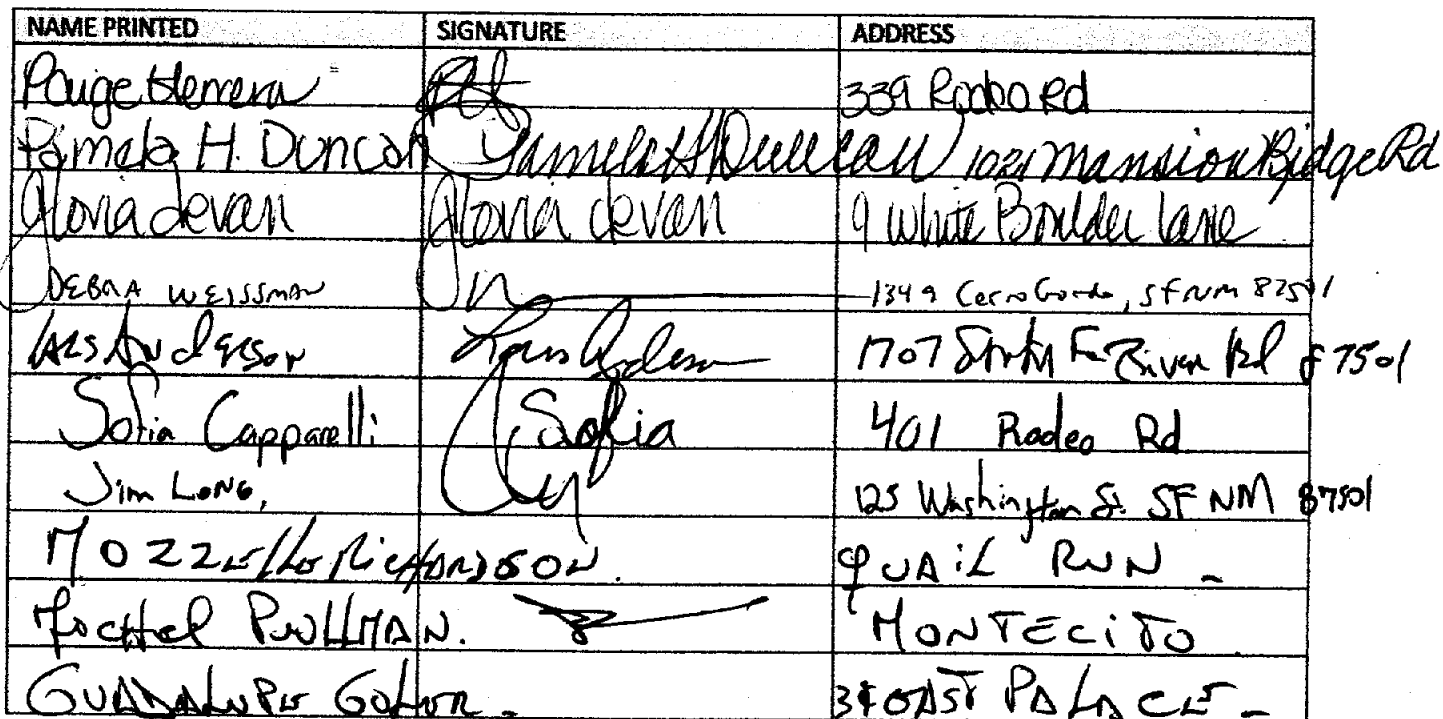 NAME PRINTED SIGNATURE ADDRESS
Paige Herrera 339 Rodeo Rd
Pamela H. Duncan Pamela H Duncan 1021 Mansion Ridge Rd
Gloria devan Gloria devan 9 White Boulder Lane
DEBRA WEISSMAN 1349 Cerro Gordo, SF NM 87501
Anderson 1707 Santa Fe River Rd 87501
Sofia Capparelli Sofia 401 Rodeo Rd
Jim LONG, 125 Washington St. SF NM 87501
MOZZELLE RICHARDSON. QUAIL RUN -
PULLMAN. MONTECITO
GUADALUPE EAST PALACE -